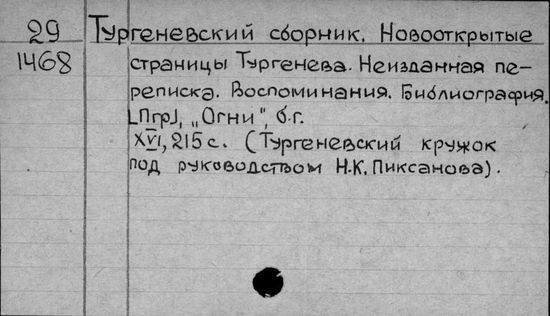 29 Тургеневский сборник. Новооткрытые
1468 страницы Тургенева. Неизданная пе-
реписка. Воспоминания. Библиография.
[Пгр], „Огни" б.г.
XVI, 215 с. (Тургеневский кружок
под руководством Н.К. Пиксанова).